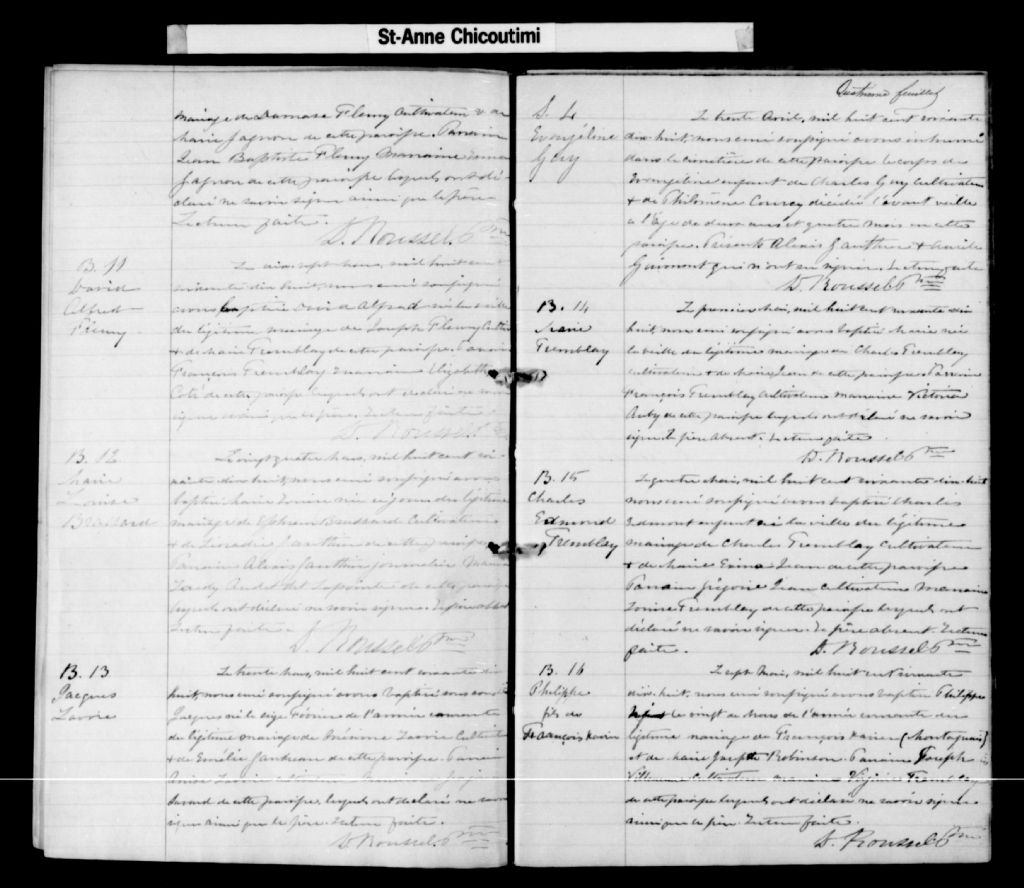 St-Anne Chicoutimi
mariage de Damase Fleury Cultivateur & de
Marie Gagnon de cette paroisse. Parrain
Jean Baptiste Fleury Marraine
Gagnon de cette paroisse lesquels ont dé-
claré ne savoir signer ainsi que le père
Lecture faite.
D. Roussel Ptre
B. 11
David
Alfred
Fleury
Le dix sept Mars, mil huit cent
soixante dix huit, nous curé soussigné
avons baptisé David Alfred né la veille
du légitime mariage de Joseph Fleury Culti
& de Marie Tremblay de cette paroisse. Parrain
François Tremblay Marraine Elizabeth
Coté de cette paroisse lesquels ont déclaré ne savoir
signer ainsi que le père. Lecture faite
D. Roussel
B. 12
Marie
Louise
Brassard
Le vingt quatre Mars, mil huit cent soi-
xante dix huit, nous curé soussigné avons
baptisé Marie Louise née ce jour du légitime
mariage de Ephrem Brassard Cultivateur
& de Gauthier de cette paroisse
Parrain Alexis Gauthier journalier Marraine
Audet dit Lapointe de cette paroisse
lesquels ont déclaré ne savoir signer. Le père absent
Lecture faite.
D. Roussel Ptre
B. 13
Jacques
Lavoie
Le trente Mars, mil huit cent soixante dix
huit, nous curé soussigné avons baptisé sous condit
Jacques né le six Février de l'année courante
du légitime mariage de Onésime Lavoie Cultivat
& de Emélie Gaudreau de cette paroisse. Parrain
Lavoie
Savard de cette paroisse, lesquels ont déclaré ne savoir
signer ainsi que le père. Lecture faite.
D. Roussel Ptre
Quatrième feuillet
S. 4
Evangéline
Guy
Le trente Avril, mil huit cent soixante
dix-huit, nous curé soussigné avons inhumé
dans le cimetière de cette paroisse le corps de
Evangéline enfant de Charles Guy Cultivateur
& de Philomène décédée l'avant veille
à l'âge de deux ans et quatre mois en cette
paroisse. Présents Alexis Gauthier &
Guimont qui n'ont su signer. Lecture faite
D. Roussel Ptre
B. 14
Marie
Tremblay
Le premier Mai, mil huit cent soixante dix
huit, nous curé soussigné avons baptisé Marie née
la veille du légitime mariage de Charles Tremblay
cultivateur & de Marie Jean de cette paroisse. Parrain
François Tremblay Cultivateur marraine Victoria
Auby de cette paroisse lesquels ont déclaré ne savoir
signer le père absent. Lecture faite
D. Roussel Ptre
B. 15
Charles
Edmond
Tremblay
Le quatre Mai, mil huit cent soixante dix-huit
nous curé soussigné avons baptisé Charles
Edmond enfant né la veille du légitime
mariage de Charles Tremblay Cultivateur
& de Marie Emma Jean de cette paroisse
Parrain Grégoire Jean Cultivateur Marraine
Louise Tremblay de cette paroisse lesquels ont
déclaré ne savoir signer. Le père absent. Lecture
faite.
D. Roussel Ptre
B. 16
Philippe
fils de
François Xavier
Le sept Mai, mil huit cent soixante
dix-huit, nous curé soussigné avons baptisé Philippe
le vingt de Mars de l'année courante du
légitime mariage de François Xavier (Montagnais)
et de Marie Josepte Robinson. Parrain Joseph
Villeneuve Cultivateur marraine Virginie Tremblay
de cette paroisse lesquels ont déclaré ne savoir signer
ainsi que le père. Lecture faite.
D. Roussel Ptre